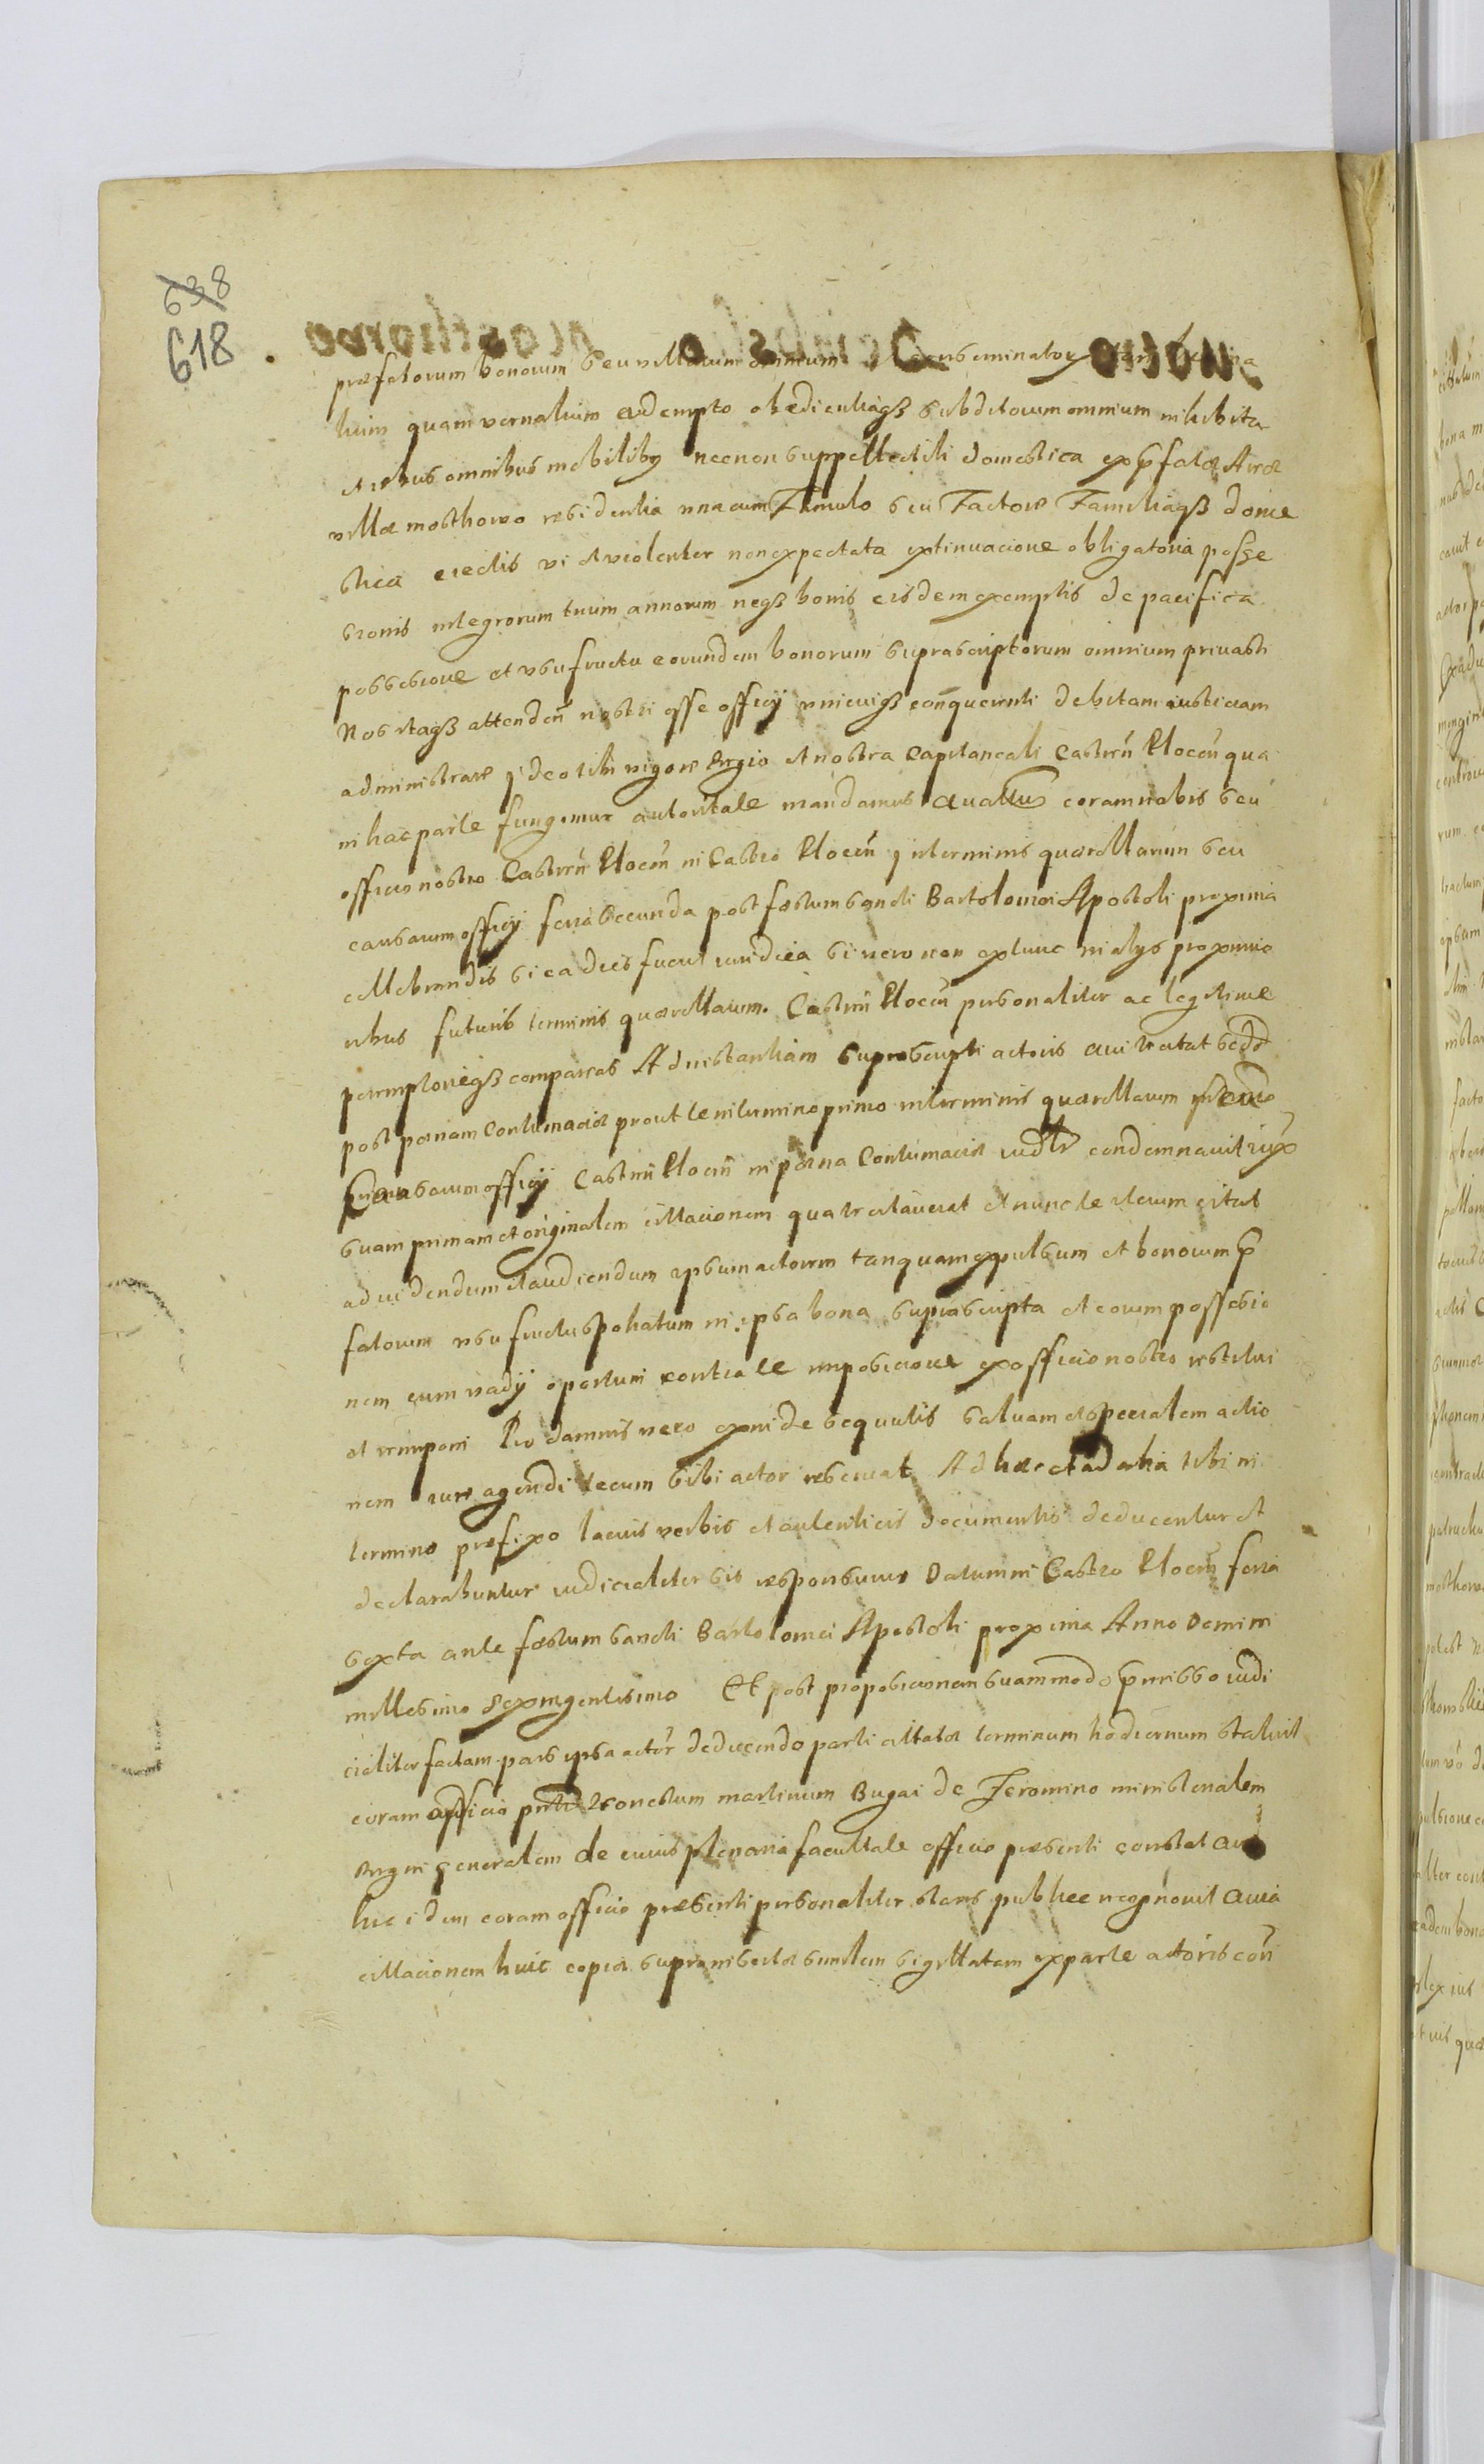 638
618
præfatorum bonorum seu villarum omnium
lium quam vernalium adempto obedientiaq3 subditorum omnium inhibita
et rebus omnibus mobilibus necnon suppellectili domestica ex præfatæ
villæ mosthowo residentia una cum Famulo seu Factore Familiaq3 dome
stica eiectis vi et violenter non expectata extinuacione obligatoria posse
sionis integrorum trium annorum neq3 bonis eisdem exemptis de pacifica
possessione et usufructu eorundem bonorum suprascriptorum omnium privasti
Nos itaq3 attenden nostri esse officij unicuiq3 conquerenti debitam iusticiam
administrare ideo tibi vigore Regio et nostra Capitaneali Castren Plocen qua
in hac parte fungimur autoritate mandamus quattus coram nobis seu
officio nostro Castren Plocen in Castro Plocen in terminis quærellarum seu
causarum officij feria secunda post fæstum sancti Bartolomæi Apostoli proxima
cellebrandis si ea dies fuerit iuridica si vero non extunc in alys proximio
ribus futuris terminis quærellarum Castren Plocen personaliter ac legitime
peremptorieq3 compareas Ad instantiam suprascripti actoris qui te citat
post pænam Contumaciæ prout te in termino primo in terminis quærellarum
Causarum officij Castren Plocen in pæna Contumaciæ condemnavit iux
suam primam et originalem citacionem qua te citaverat et nunc te iterum citat
ad videndum et audiendum ipsum actorem tanquam expulsum et bonorum præ
fatorum usufructu spoliatum in ipsa bona suprascripta et eorum possessio
nem cum vadij oportuni contra te imposicione ex officio nostro restitui
et reimponi Pro damnis vero exinde sequutis salvam et specialem actio
nem iure agendi tecum sibi actor reservat Ad hæc et ad alia tibi in
termino præfixo lacius verbis et autenticis documentis deducentur et
declarabuntur iudicialiter sis responsurus Datum in Castro Plocen feria
sexta ante fæstum sancti Bartolomei Apostoli proxima Anno Domini
millesimo sexingentesimo Et post proposicionem suam modo præmisso iudi
cialiter factam pars ipsa actor deducendo parti citatæ terminum hodiernum statuit
coram officio honestum martinum Bugai de Jeromino ministerialem
Regni generalem de cuius plenaria facultate officio præsenti constat
hic idem coram officio præsenti personaliter stans publice recognovit quia
citacionem huic copiæ suprainsertæ similem sigillatam ex parte actoris con